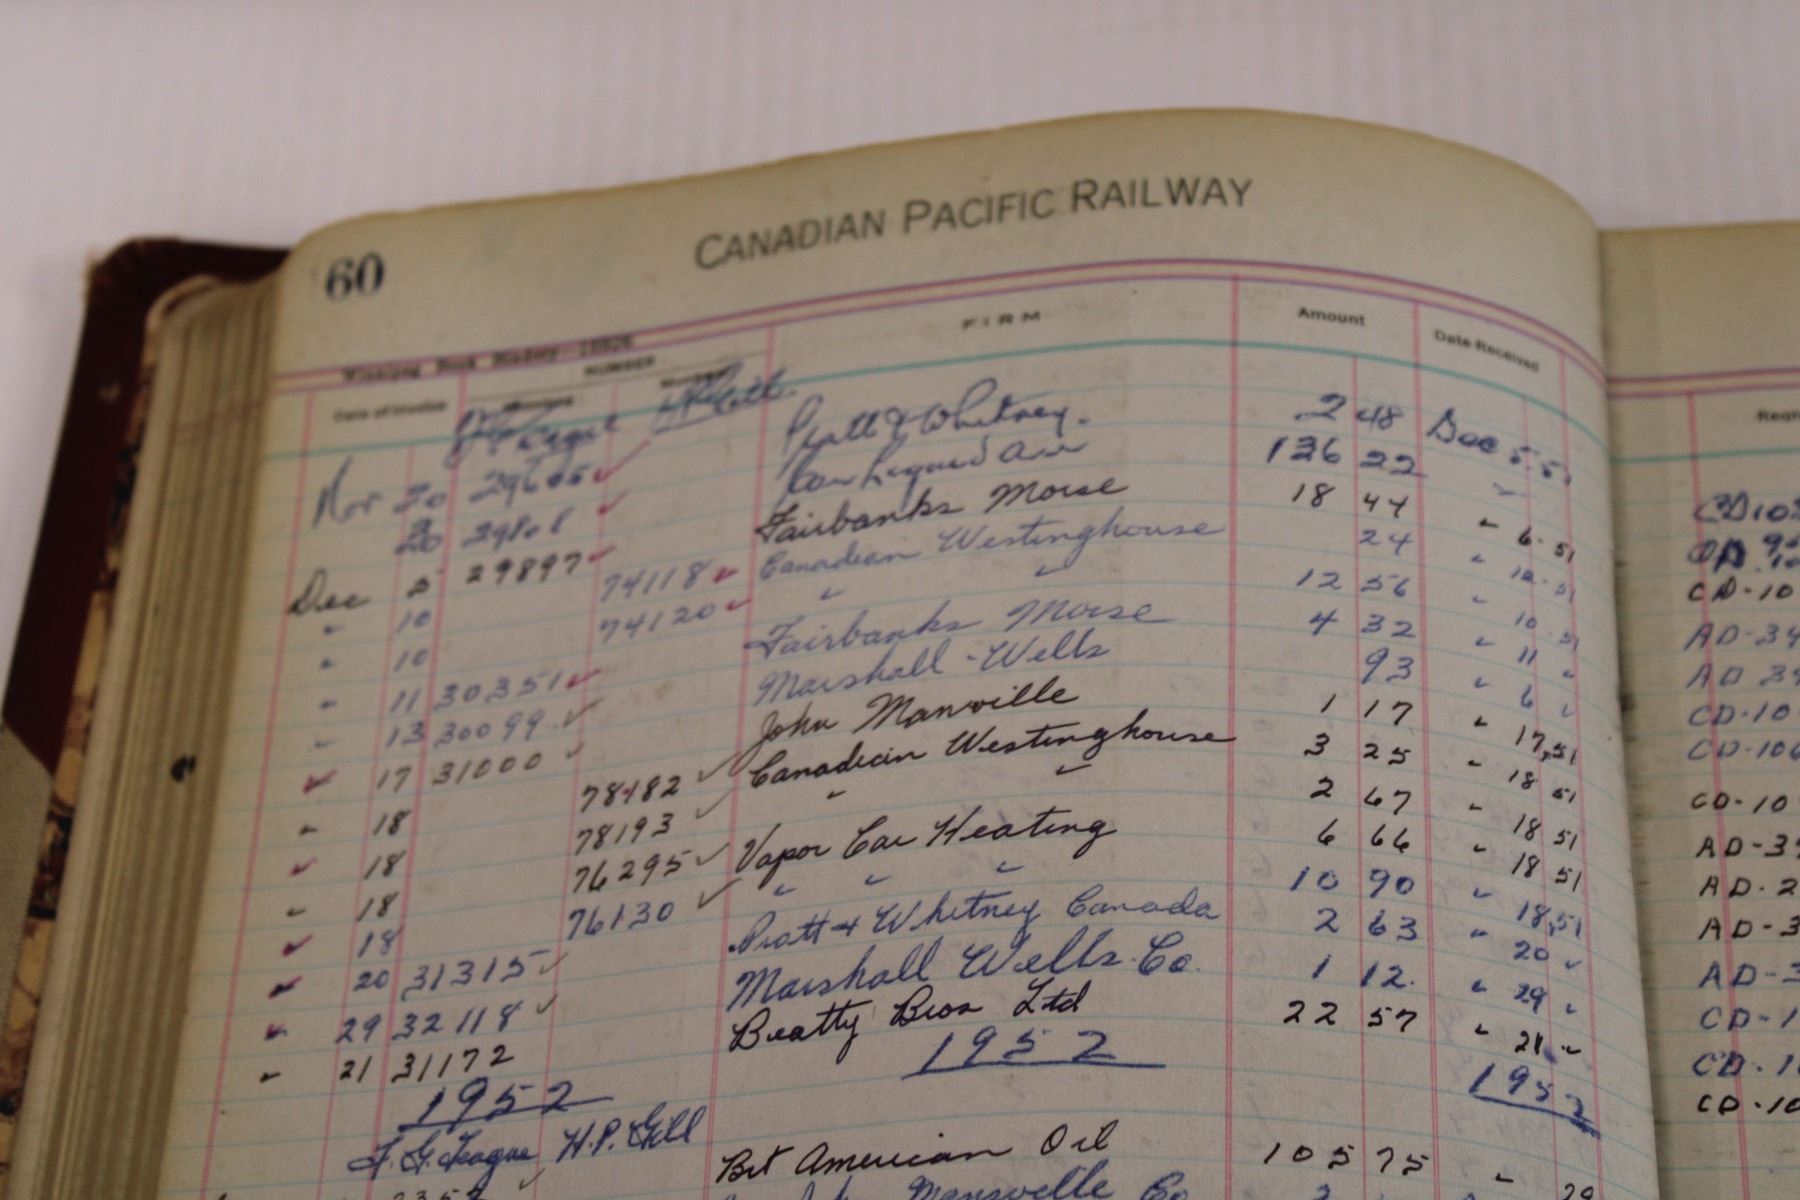 60 CANADIAN PACIFIC RAILWAY
Winnipeg
NUMBER FIRM Amount Date Received
Date of Invoice
Nov 20 29605 Pratt & Whitney. 2 48 Dec 5 51
20 29808 Can Liquid Air 136 22 "
Dec 5 29897 Fairbanks Morse 18 44 " 6 51 CD-10
" 10 74118 Canadian Westinghouse 24 " 12 51 AD-34
" 10 74120 " " 12 56 " 10 51 AD 39
" 11 30351 Fairbanks Morse 4 32 " 11 " CD-10
" 13 30099 Marshall-Wells 93 " 6 " CD-106
" 17 31000 John Manville 1 17 " 17, 51 CD-10
" 18 78182 Canadian Westinghouse 3 25 " 18 51 AD-39
" 18 78193 " " 2 67 " 18 51 AD-2
" 18 76295 Vapor Car Heating 6 66 " 18 51 AD-3
" 18 76130 " " " 10 90 " 18, 51 AD-3
" 20 31315 Pratt & Whitney Canada 2 63 " 20 " CD-1
" 29 32118 Marshall Wells Co. 1 12. " 29 " CD-10
" 21 31172 Beatty Bros Ltd 22 57 " 21 " CD-10
1952 1952 1952
F. G. Teague H. P. Gill
Brit American Oil 105 75 " 29
Manville Co